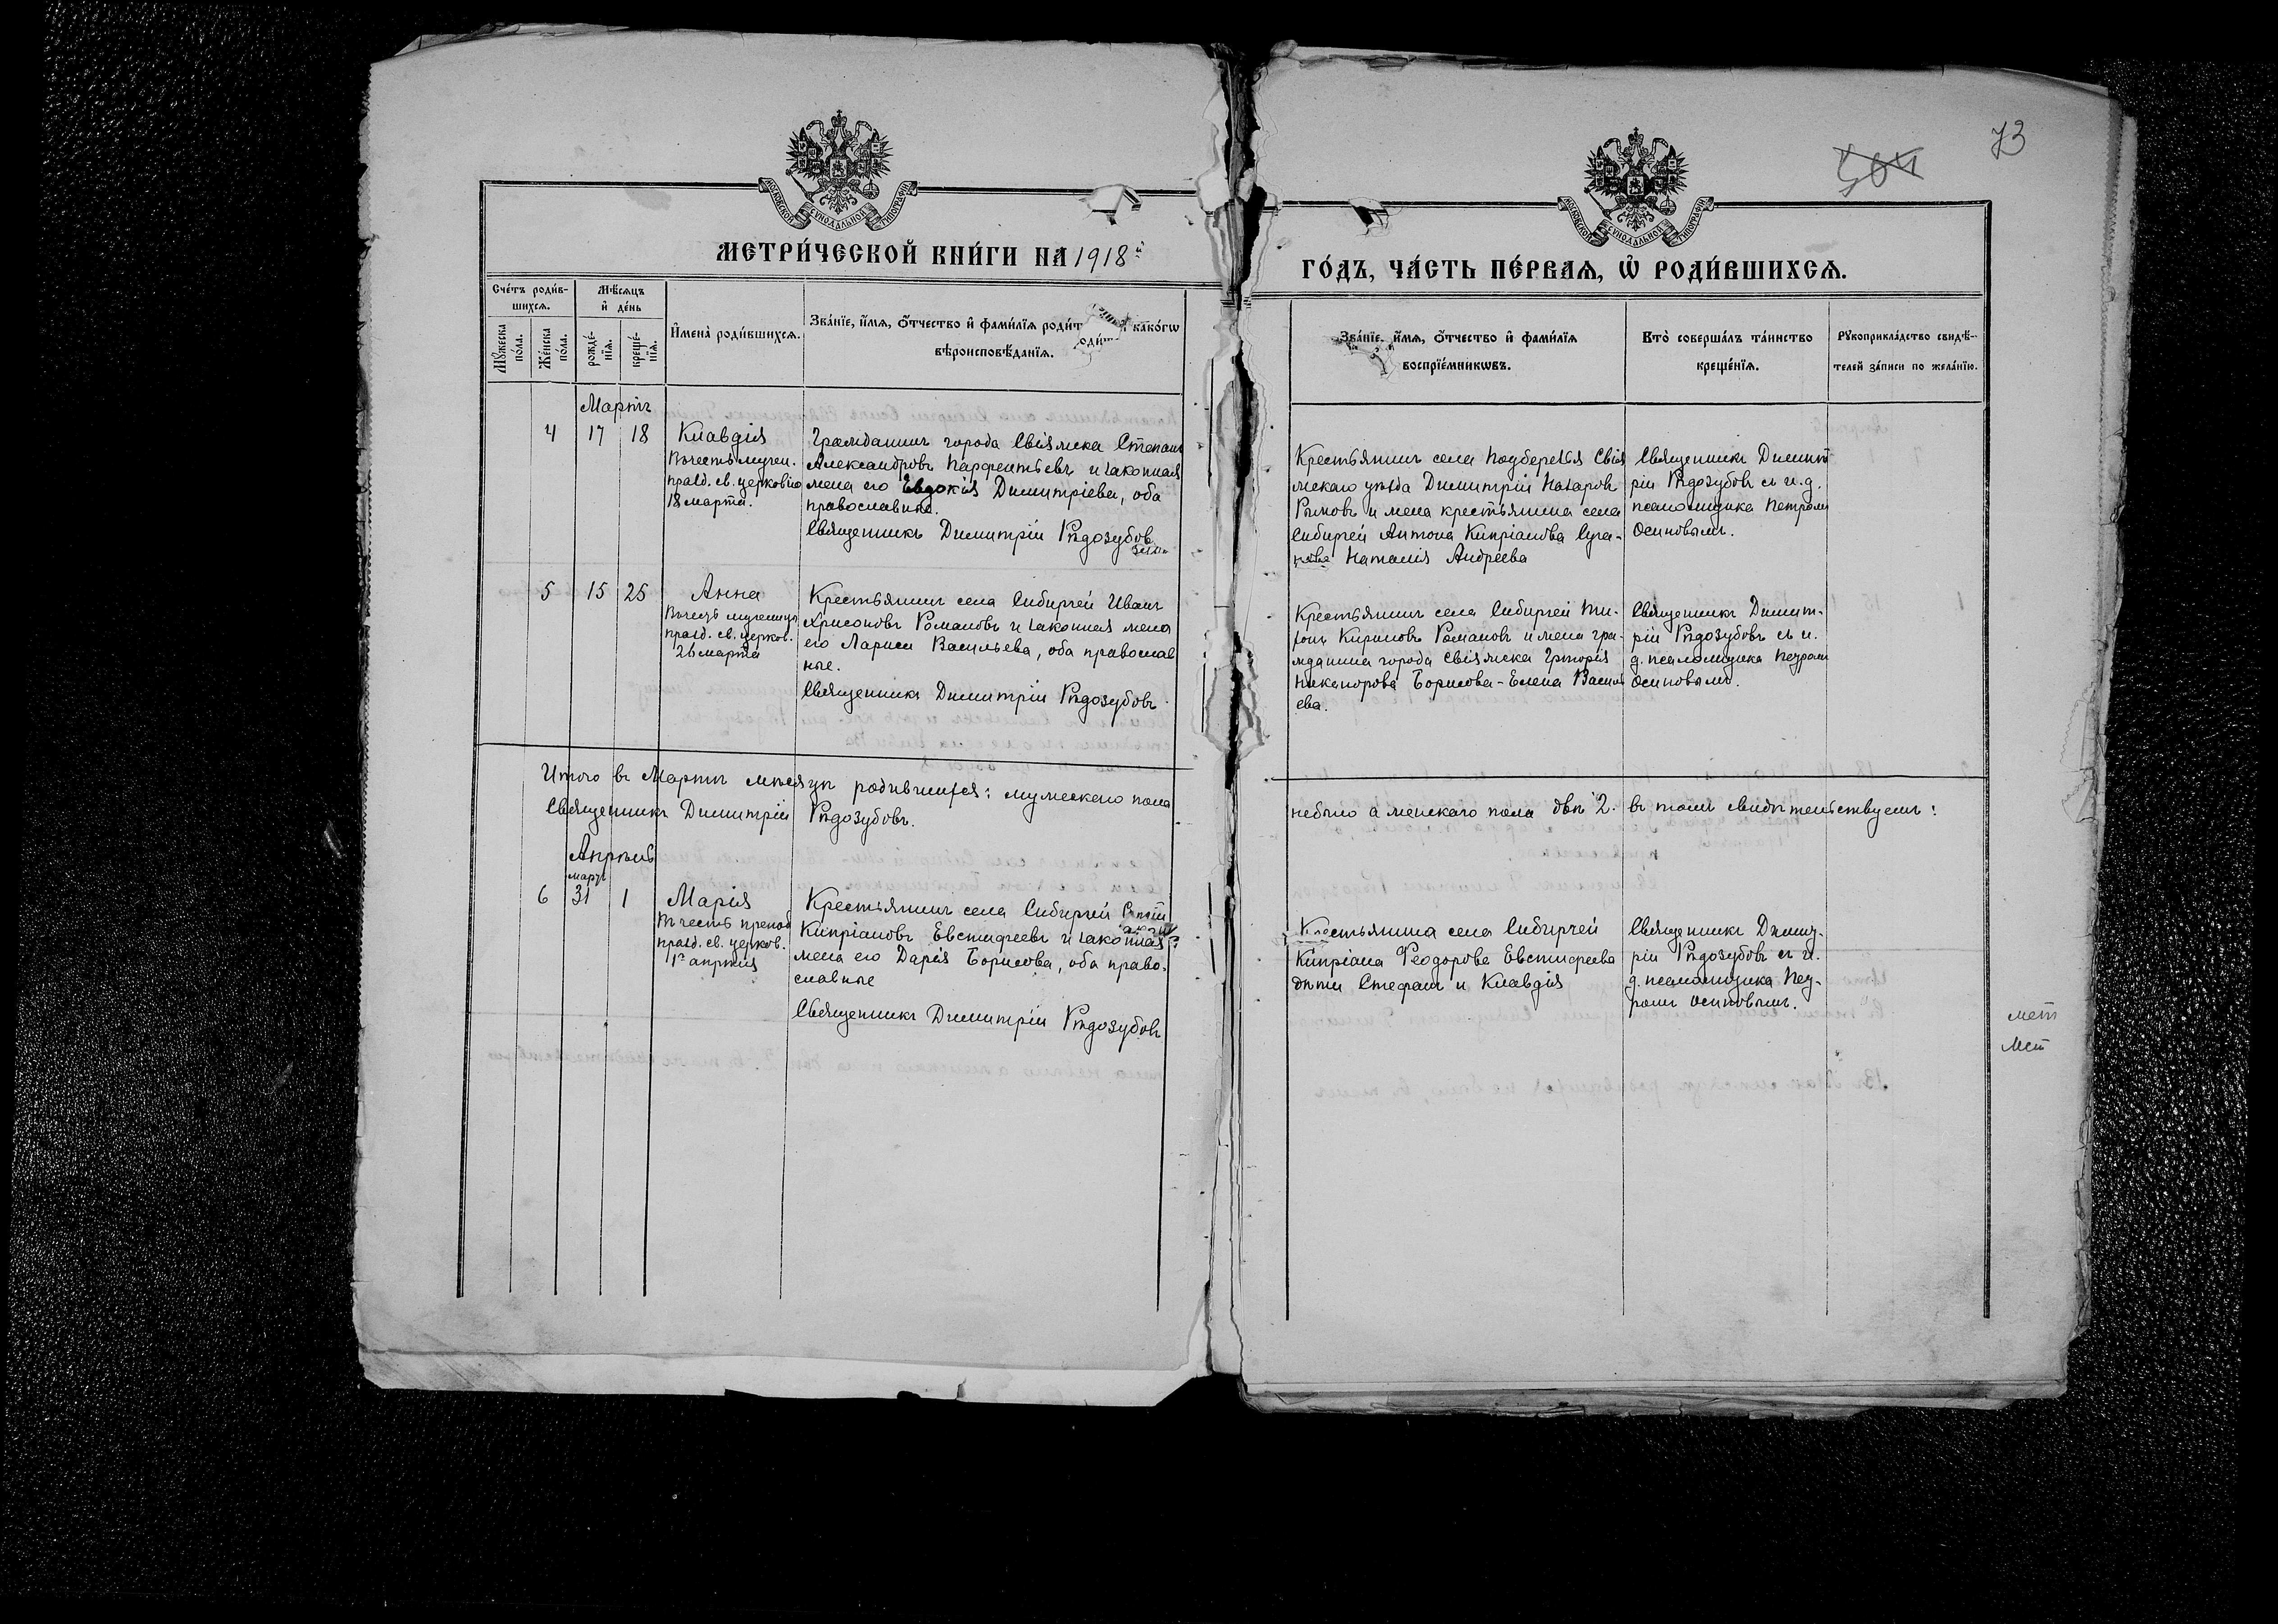 73
504
МОСКОВСКОЙ СѴНОДАЛЬНОЙ ТИПОГРАФІИ
МОСКОВСКОЙ СѴНОДАЛЬНОЙ ТИПОГРАФІИ
МЕТРИ́ЧЕСКОЙ КНИ́ГИ НА 1918й
ГО́ДЪ, ЧА́СТЬ ПЕ́РВАЯ, Ѡ РОДИ́ВШИХСЯ.
Сче́тъ роди́в-
шихся.
Мꙋ́жеска по́ла.
Же́нска по́ла.
Мѣ́сяцъ
и҆ де́нь
рожде́-
нїя.
креще́-
нїя.
И҆мена̀ роди́вшихся.
Зва́нїе, и҆́мя, ѻ҆́тчество и҆ фами́лїя роди́т како́гѡ
вѣроисповѣ́данїя.
Зва́нїе, и҆́мя, ѻ҆́тчество и҆ фами́лїя
воспрїе́мникѡвъ.
Кто̀ соверша́лъ та́инство
креще́нїя.
Рꙋкоприкла́дство свидѣ́-
телей за́писи по жела́нїю.
Мартъ
4 17 18 Клавдія
Въ честь мучен.
празд. св. церковію
18 марта.
Гражданинъ города Свіяжска Степанъ
Александровъ Парфентьевъ и законная
жена его Евдокія Димитріева, оба
православные.
Священникъ Димитрій Рѣдозубовъ
Крестьянинъ села Подберезья Свія
жскаго уѣзда Димитрій Назаровъ
Рыжовъ и жена крестьянина села
Сибирчей Антона Кипріанова Суга-
Наталія Андреева
Священникъ Димит
рій Рѣдозубовъ съ и. д.
псаломщика Петромъ
Осиповымъ.
5 15 25 Анна
Въ честь мученицы
празд. св. церков.
26 марта
Крестьянинъ села Сибирчей Иванъ
Хрисановъ Романовъ и законная жена
его Лариса Васильева, оба православ
ные.
Священникъ Димитрій Рѣдозубовъ.
Крестьянинъ села Сибирчей Ти-
хонъ Кириловъ Романовъ и жена гра-
жданина города Свіяжска Григорія
Никанорова Борисова - Елена Василь
ева.
Священникъ Димит-
рій Рѣдозубовъ съ и.
д. псаломщика Петромъ
Осиповымъ.
Итого въ Мартѣ мѣсяцѣ родившихся: мужескаго пола
небыло а женскаго пола двѣ 2. въ томъ свидѣтельствуемъ:
Священникъ Димитрій Рѣдозубовъ.
Апрѣль
мартъ
6 31 1 Марія
Въ честь препод
празд. св. церков.
1го апрѣля
Крестьянинъ села Сибирчей
Кипріановъ Евстифеевъ и законная
жена его Дарія Борисова, оба право-
славные
Священникъ Димитрій Рѣдозубовъ
Крестьянина села Сибирчей
Кипріана Ѳеодорова Евстифеева
дѣти Стефанъ и Клавдія
Священникъ Димит-
рій Рѣдозубовъ съ и.
д. псаломщика Пет-
ромъ Осиповымъ.
мет
мет